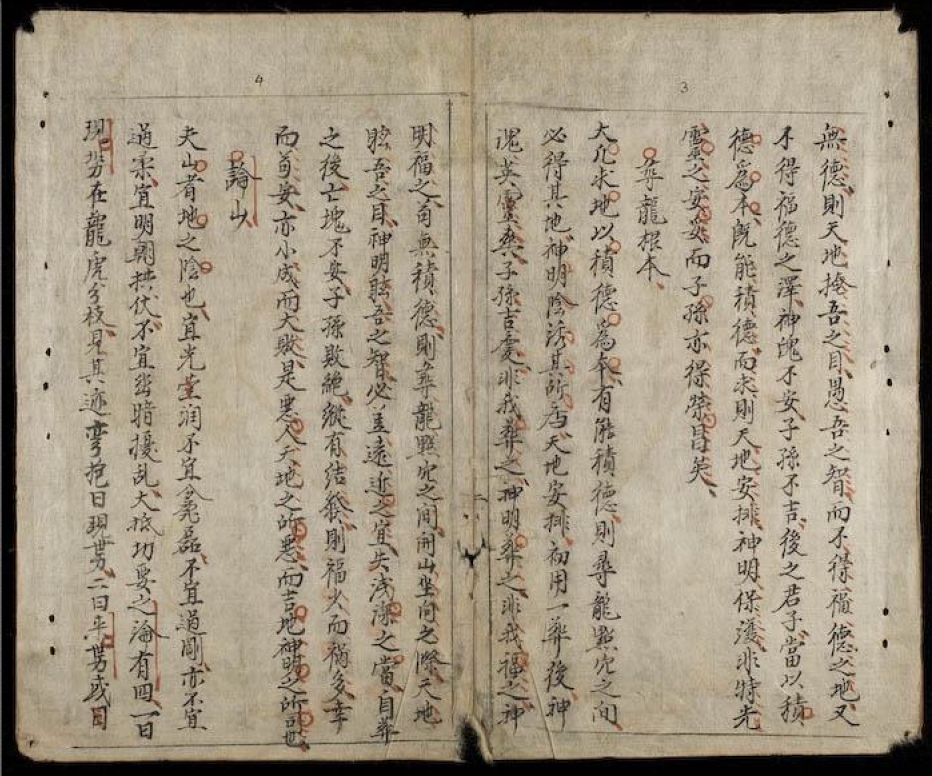 3
無德則天地掩吾之目愚吾之智而不得福德之地又
不得福德之澤神魄不安子孫不吉後之君子當以積
德爲本旣能積德而求則天地安排神明保護非特先
靈之安妥而子孫亦得榮昌矣
尋龍根本
大凢求地以積德爲本有能積德則尋龍點穴之间
必得其地神明陰誘其所爲天地安排初用一葬後神
魂英靈奠子孫吉慶非我葬之神明葬之非我福之神
4
明福之旬無積德則尋龍點穴之间開山坐向之際天地
眩吾之目神明眩吾之智必差遠近之宜失浅深之當自葬
之後亡塊不安子孫敗絶縱有结發則福少而禍多幸
而苟安亦小成而大敗是悪人天地之所悪而吉地神明之所司也
論山
夫山者地之陰也宜光堂润不宜磊不宜過剛亦不宜
過柔宜明朝拱伏不宜幽暗擾乱大抵切要之論有四一曰
現势在龍虎分枝見其迹弯抱曰現势二曰平势或自